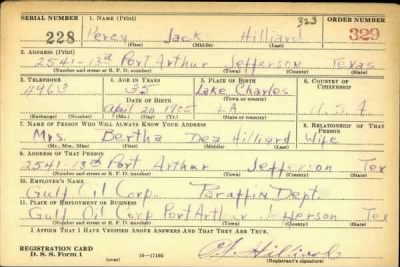 SERIAL NUMBER 1. NAME (Print) 323 ORDER NUMBER
228 Percy Jack Hilliard 329
(First) (Middle) (Last)
2. ADDRESS (Print)
2541-13th Port Arthur Jefferson Texas
(Number and street or R. F. D. number) (Town) (County) (State)
3. TELEPHONE 4. AGE IN YEARS 5. PLACE OF BIRTH 6. COUNTRY OF CITIZENSHIP
4963 35 Lake Charles
DATE OF BIRTH (Town or county)
April 20 1905 LA U.S.A.
(Exchange) (No.) (Mo.) (Day) (Yr.) (State or country)
7. NAME OF PERSON WHO WILL ALWAYS KNOW YOUR ADDRESS 8. RELATIONSHIP OF THAT PERSON
Mrs. Bertha Dea Hilliard Wife
(Mr., Mrs., Miss) (First) (Middle) (Last)
9. ADDRESS OF THAT PERSON
2541-13th Port Arthur Jefferson Tex
(Number and street or R. F. D. number) (Town) (County) (State)
10. EMPLOYER'S NAME
Gulf Oil Corp. Paraffin Dept.
11. PLACE OF EMPLOYMENT OR BUSINESS
Gulf Oil Corp Port Arthur Jefferson Tex
(Number and street or R. F. D. number) (Town) (County) (State)
I AFFIRM THAT I HAVE VERIFIED ABOVE ANSWERS AND THAT THEY ARE TRUE.
REGISTRATION CARD
D. S. S. Form 1 (over) 16—17105 Hilliard
(Registrant's signature)